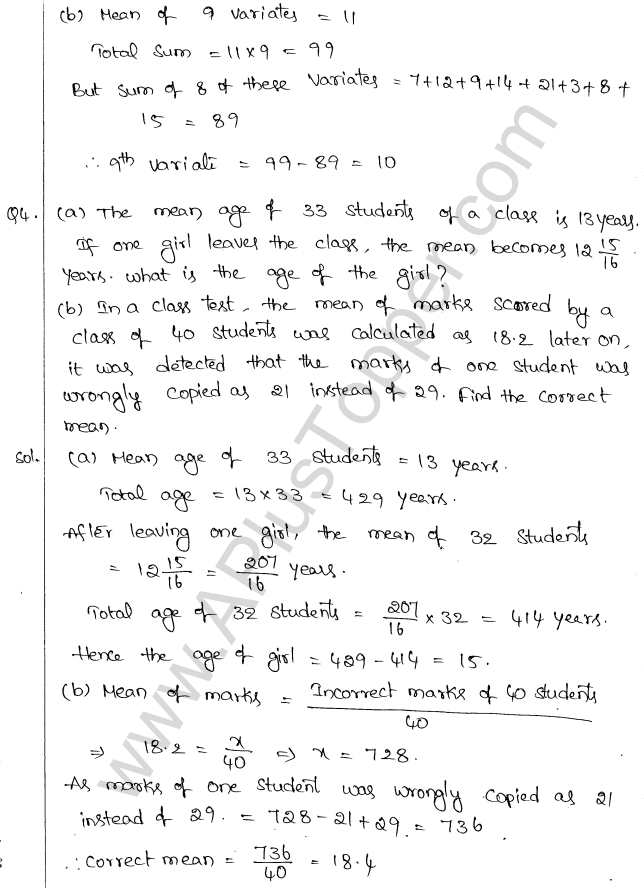 (b) Mean of 9 variates = 11
Total sum = 11 × 9 = 99
But sum of 8 of these variates = 7+12+9+14+21+3+8+
15 = 89
∴ 9th variate = 99 - 89 = 10
Q4. (a) The mean age of 33 students of a class is 13 years.
If one girl leaves the class, the mean becomes 12 15/16
years. what is the age of the girl?
(b) In a class test, the mean of marks scored by a
class of 40 students was calculated as 18.2 later on,
it was detected that the marks of one student was
wrongly copied as 21 instead of 29. Find the correct
mean.
Sol. (a) Mean age of 33 students = 13 years.
Total age = 13 × 33 = 429 years.
After leaving one girl, the mean of 32 students
= 12 15/16 = 207/16 years.
Total age of 32 students = 207/16 × 32 = 414 years.
Hence the age of girl = 429 - 414 = 15.
(b) Mean of marks = Incorrect marks of 40 students / 40
⇒ 18.2 = x/40 ⇒ x = 728.
As marks of one student was wrongly copied as 21
instead of 29. = 728 - 21 + 29 = 736
∴ correct mean = 736/40 = 18.4
www.APlusTopper.com